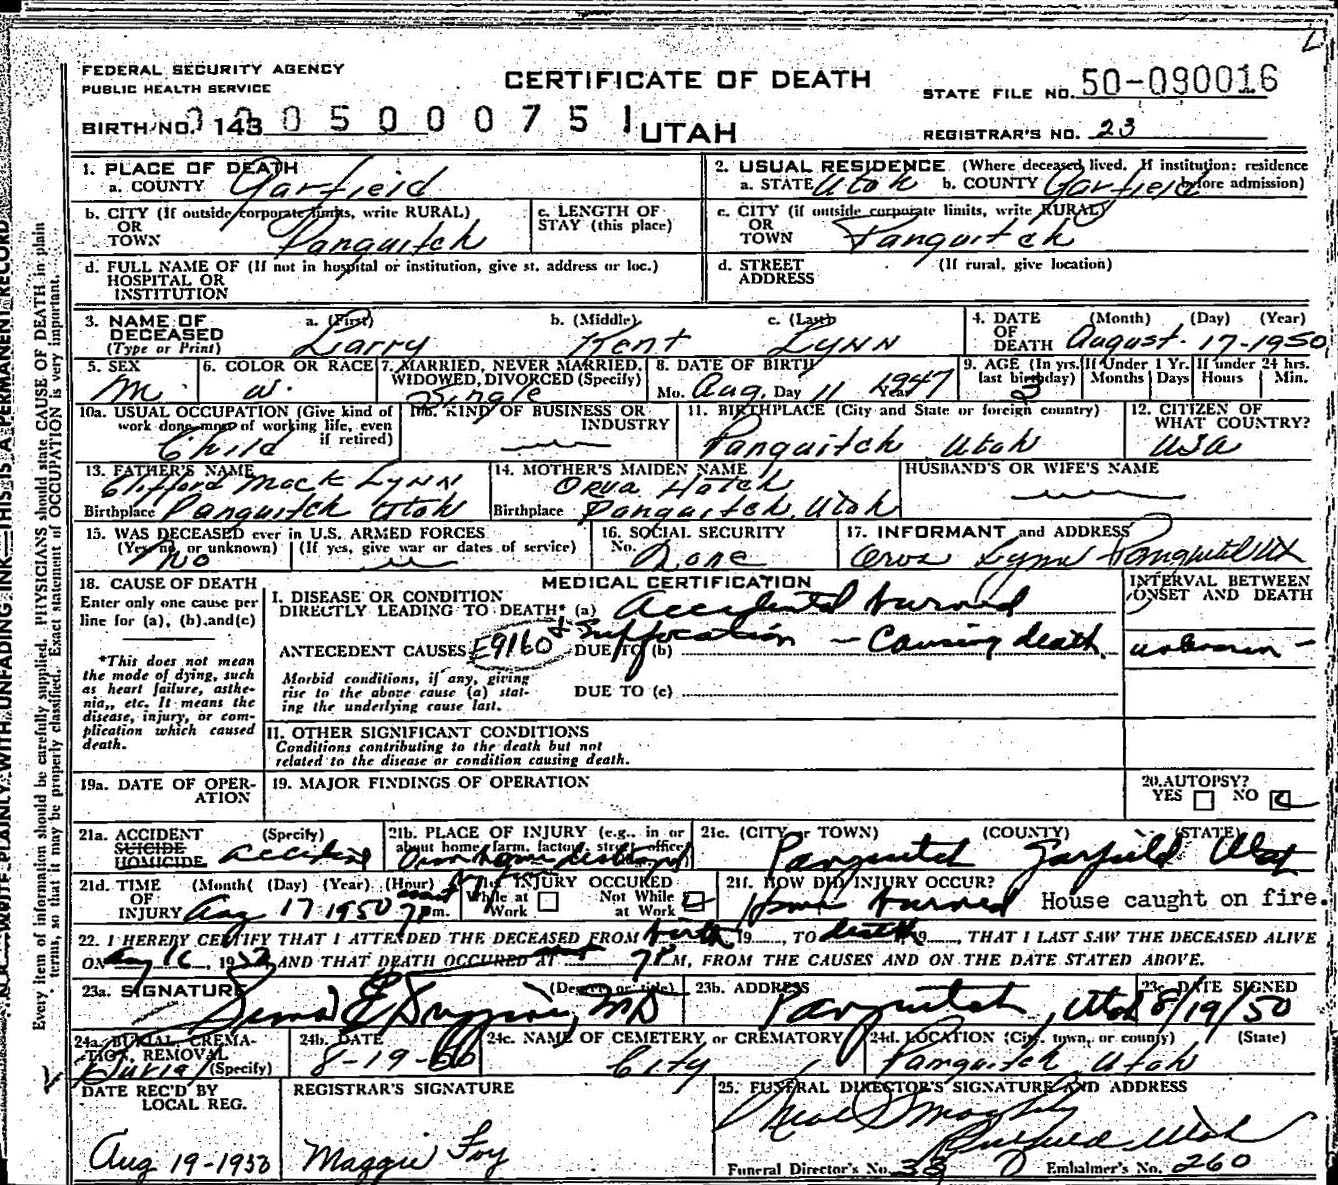 L
FEDERAL SECURITY AGENCY
PUBLIC HEALTH SERVICE
CERTIFICATE OF DEATH
STATE FILE NO. 50-090016
BIRTH NO. 143
0050000751
UTAH
REGISTRAR'S NO. 23
1. PLACE OF DEATH
a. COUNTY Garfield
2. USUAL RESIDENCE (Where deceased lived. If institution: residence before admission)
a. STATE Utah b. COUNTY Garfield
b. CITY (If outside corporate limits, write RURAL) OR TOWN Panguitch
c. LENGTH OF STAY (this place)
c. CITY (if outside corporate limits, write RURAL) OR TOWN Panguitch
d. FULL NAME OF (If not in hospital or institution, give st. address or loc.) HOSPITAL OR INSTITUTION
d. STREET ADDRESS (If rural, give location)
3. NAME OF DECEASED (Type or Print)
a. (First) Larry b. (Middle) Kent c. (Last) Lynn
4. DATE OF DEATH (Month) (Day) (Year) August - 17-1950
5. SEX M.
6. COLOR OR RACE W.
7. MARRIED, NEVER MARRIED, WIDOWED, DIVORCED (Specify) Single
8. DATE OF BIRTH Mo. Aug. Day 11 Year 1947
9. AGE (In yrs. last birthday) 3
If Under 1 Yr. Months Days
If under 24 hrs. Hours Min.
10a. USUAL OCCUPATION (Give kind of work done most of working life, even if retired) Child
10b. KIND OF BUSINESS OR INDUSTRY
11. BIRTHPLACE (City and State or foreign country) Panguitch Utah
12. CITIZEN OF WHAT COUNTRY? USA
13. FATHER'S NAME Clifford Mack Lynn
Birthplace Panguitch Utah
14. MOTHER'S MAIDEN NAME Orva Hatch
Birthplace Panguitch, Utah
HUSBAND'S OR WIFE'S NAME
15. WAS DECEASED ever in U.S. ARMED FORCES
(Yes, no, or unknown) No (If yes, give war or dates of service)
16. SOCIAL SECURITY No. None
17. INFORMANT and ADDRESS
Orva Lynn Panguitch Ut
18. CAUSE OF DEATH
Enter only one cause per line for (a), (b), and (c)
*This does not mean the mode of dying, such as heart failure, asthenia, etc. It means the disease, injury, or complication which caused death.
MEDICAL CERTIFICATION
INTERVAL BETWEEN ONSET AND DEATH
I. DISEASE OR CONDITION DIRECTLY LEADING TO DEATH* (a) Accidental burned
& Suffocation - Causing death
ANTECEDENT CAUSES E9160 DUE TO (b)
unknown -
Morbid conditions, if any, giving rise to the above cause (a) stating the underlying cause last.
DUE TO (c)
II. OTHER SIGNIFICANT CONDITIONS
Conditions contributing to the death but not related to the disease or condition causing death.
19a. DATE OF OPERATION
19. MAJOR FINDINGS OF OPERATION
20. AUTOPSY? YES NO
21a. ACCIDENT SUICIDE HOMICIDE (Specify) Accident
21b. PLACE OF INJURY (e.g., in or about home, farm, factory, street, office
21c. (CITY or TOWN) (COUNTY) (STATE)
Panguitch Garfield Utah
21d. TIME OF INJURY (Month) (Day) (Year) (Hour) Aug 17 1950 7 pm.
21e. INJURY OCCURED While at Work Not While at Work
21f. HOW DID INJURY OCCUR?
Home burned House caught on fire.
22. I HEREBY CERTIFY THAT I ATTENDED THE DECEASED FROM birth 19......, TO death 19......, THAT I LAST SAW THE DECEASED ALIVE
ON Aug 16, 1950, AND THAT DEATH OCCURED AT 7 PM, FROM THE CAUSES AND ON THE DATE STATED ABOVE.
23a. SIGNATURE (Degree or title) MD
23b. ADDRESS Panguitch, Utah
23c. DATE SIGNED 8/19/50
24a. BURIAL, CREMATION, REMOVAL (Specify) Burial
24b. DATE 8-19-50
24c. NAME OF CEMETERY or CREMATORY City
24d. LOCATION (City, town, or county) (State) Panguitch Utah
DATE REC'D BY LOCAL REG. Aug 19-1950
REGISTRAR'S SIGNATURE Maggie Foy
25. FUNERAL DIRECTOR'S SIGNATURE AND ADDRESS
Utah
Funeral Director's No. 33 Embalmer's No. 260
N.B.—WRITE PLAINLY WITH UNFADING INK—THIS IS A PERMANENT RECORD
Every item of information should be carefully supplied. PHYSICIANS should state CAUSE OF DEATH in plain terms, so that it may be properly classified. Exact statement of OCCUPATION is very important.